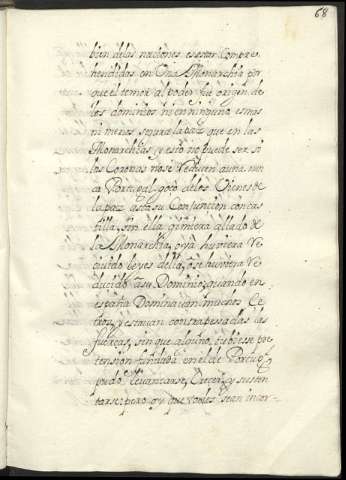 68
bien delas naciones es estar Compre-
hendidas en Una Monarchia por
que el temor al poder fue origen de
los dominios, ni en ninguno es mas
ni menos segura la paz que en las
Monarchias, y esto no puede ser, si
las Coronas no se Reducen a una, nun
ca Portugal goço delos Vienes de
la paz asta su Conjuncion con cas
tilla, sin ella, al lado de
la Monarchia, o ya huviera Re
ciuido leyes della, o se huviera Re
ducido a su Dominio, quando en
españa Dominauan muchos Ce
tros, y estauan contrapessadas las
fuerças, sin que alguno, tubiesse pre
tension fundada en el de Portugal
pudo levantarse, Crecer, y susten
tarse; pero oy que vemos estan incor-